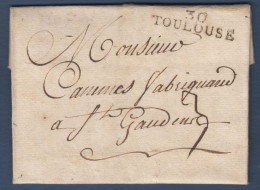 30
TOULOUSE
Monsieur
Cammes fabriquand
a St
Gaudens